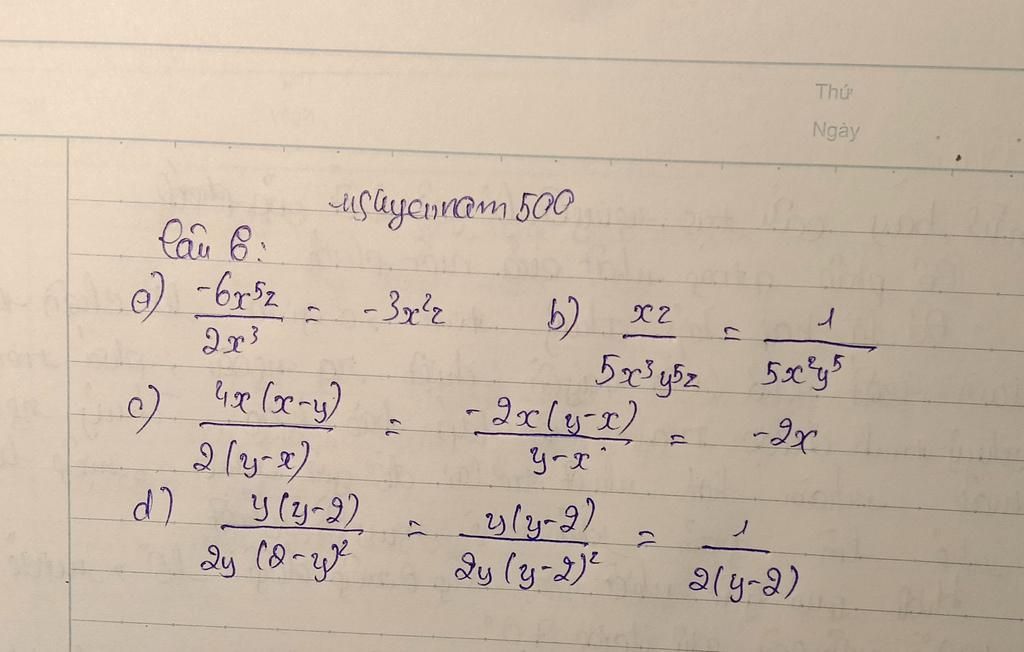 Thứ
Ngày
nguyennam500
Câu 6:
a) -6x⁵z / 2x³ = -3x²z b) xz / 5x³y⁵z = 1 / 5x²y⁵
c) 4x(x-y) / 2(y-x) = -2x(y-x) / y-x = -2x
d) y(y-2) / 2y(2-y)² = y(y-2) / 2y(y-2)² = 1 / 2(y-2)